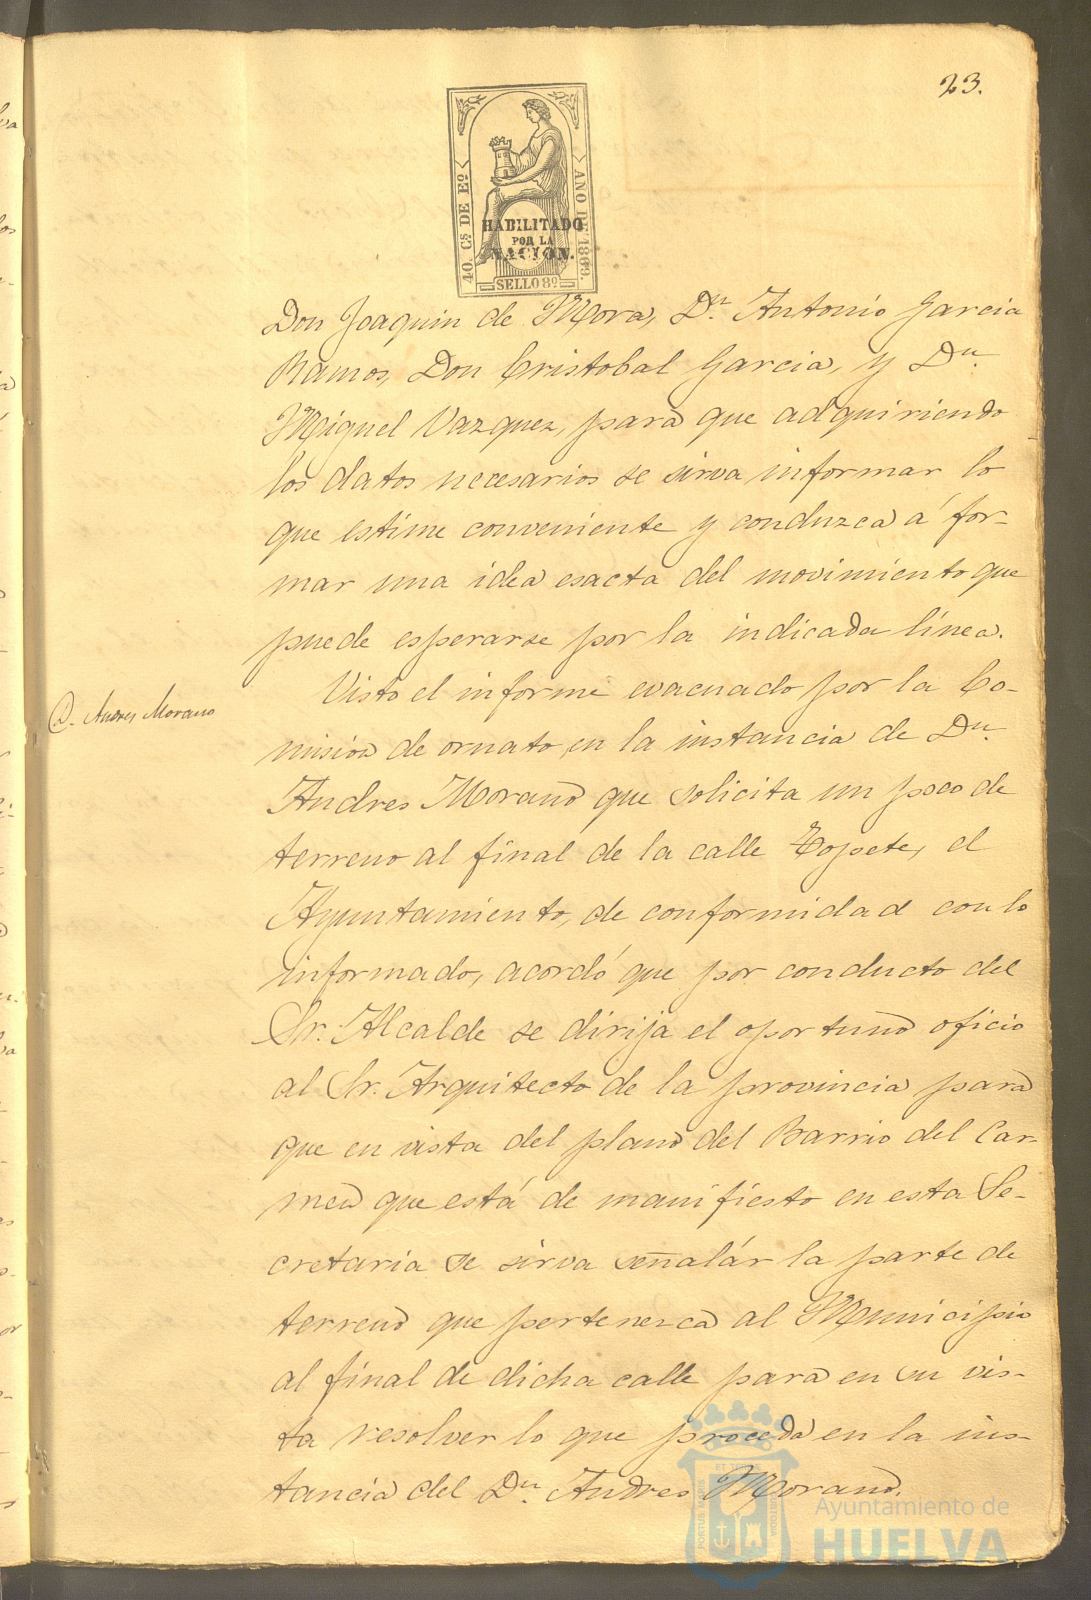 23.
40. Cs DE Eo
AÑO DE 1869.
HABILITADO
POR LA
NACION.
SELLO 8º
Don Joaquin de Mora, Dn. Antonio Garcia
Ramos, Don Cristobal Garcia, y Dn.
Miguel Vazquez, para que adquiriendo
los datos necesarios se sirva informar lo
que estime conveniente y conduzca á for-
mar una idea esacta del movimiento que
puede esperarse por la indicada línea.
D. Andres Morano
Visto el informe evacuado por la Co-
mision de ornato en la instancia de Dn.
Andres Morano que solicita un poco de
terreno al final de la calle Topete, el
Ayuntamiento, de conformidad con lo
informado, acordó que por conducto del
Sr. Alcalde se dirija el oportuno oficio
al Sr. Arquitecto de la provincia para
que en vista del plano del Barrio del Car-
men que está de manifiesto en esta Se-
cretaria se sirva señalár la parte de
terreno que pertenezca al Municipio
al final de dicha calle para en su vis-
ta resolver lo que proceda en la ins-
tancia del Dn. Andres Morano.
Ayuntamiento de
HUELVA